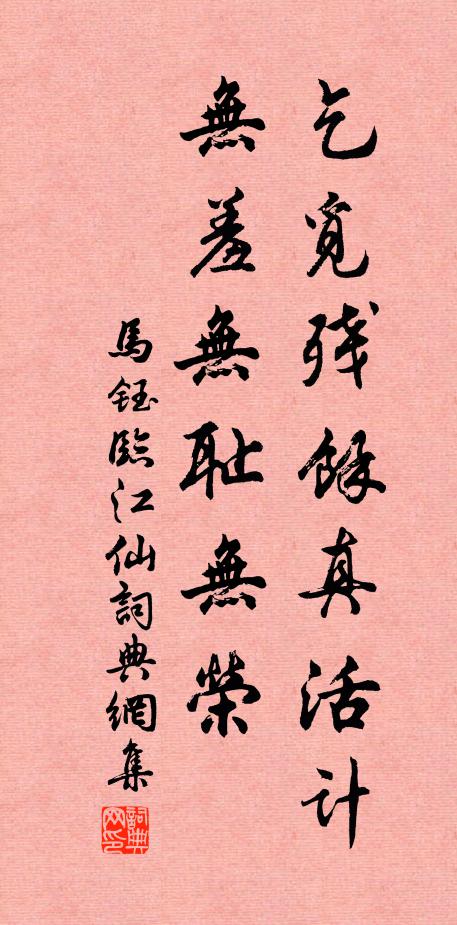 乞覓殘餘真活計
無羞無耻無榮
馬鈺臨江仙詞典網集
詞典网印